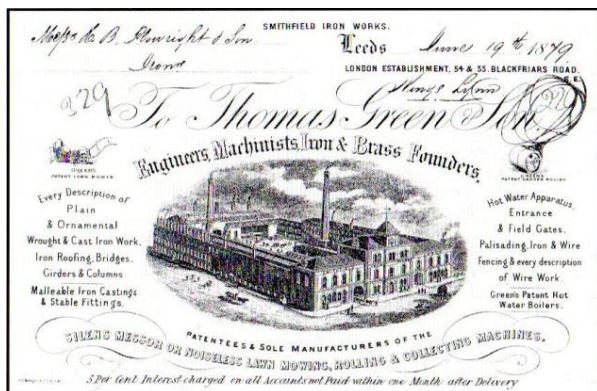 SMITHFIELD IRON WORKS.
Messrs H. B. Plowright & Son
Leeds June 19th 1879
LONDON ESTABLISHMENT, 54 & 55. BLACKFRIARS ROAD.
S.E.
Kings Lynn
229
To Thomas Green & Son
Engineers, Machinists, Iron & Brass Founders,
GREEN'S
PATENT LAWN MOWER
Every Description of
Plain
& Ornamental
Wrought & Cast Iron Work,
Iron Roofing, Bridges.
Girders & Columns
Malleable Iron Castings
& Stable Fittings.
GREEN'S
PATENT GARDEN ROLLER
Hot Water Apparatus,
Entrance
& Field Gates.
Palisading, Iron & Wire
Fencing & every description
of Wire Work.
Green's Patent Hot
Water Boilers.
PATENTEES & SOLE MANUFACTURERS OF THE
SILENS MESSOR OR NOISELESS LAWN MOWING, ROLLING & COLLECTING MACHINES.
5 Per Cent Interest charged on all Accounts not Paid within one Month after Delivery